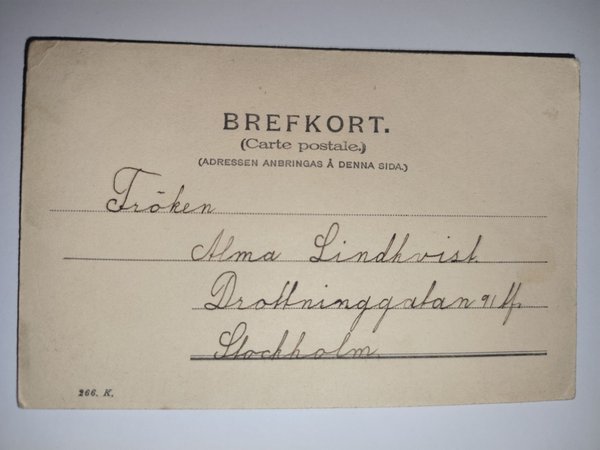 BREFKORT.
(Carte postale.)
(ADRESSEN ANBRINGAS Å DENNA SIDA.)
Fröken
Alma Lindhvist
Drottninggatan 91
Stockholm
266. K.